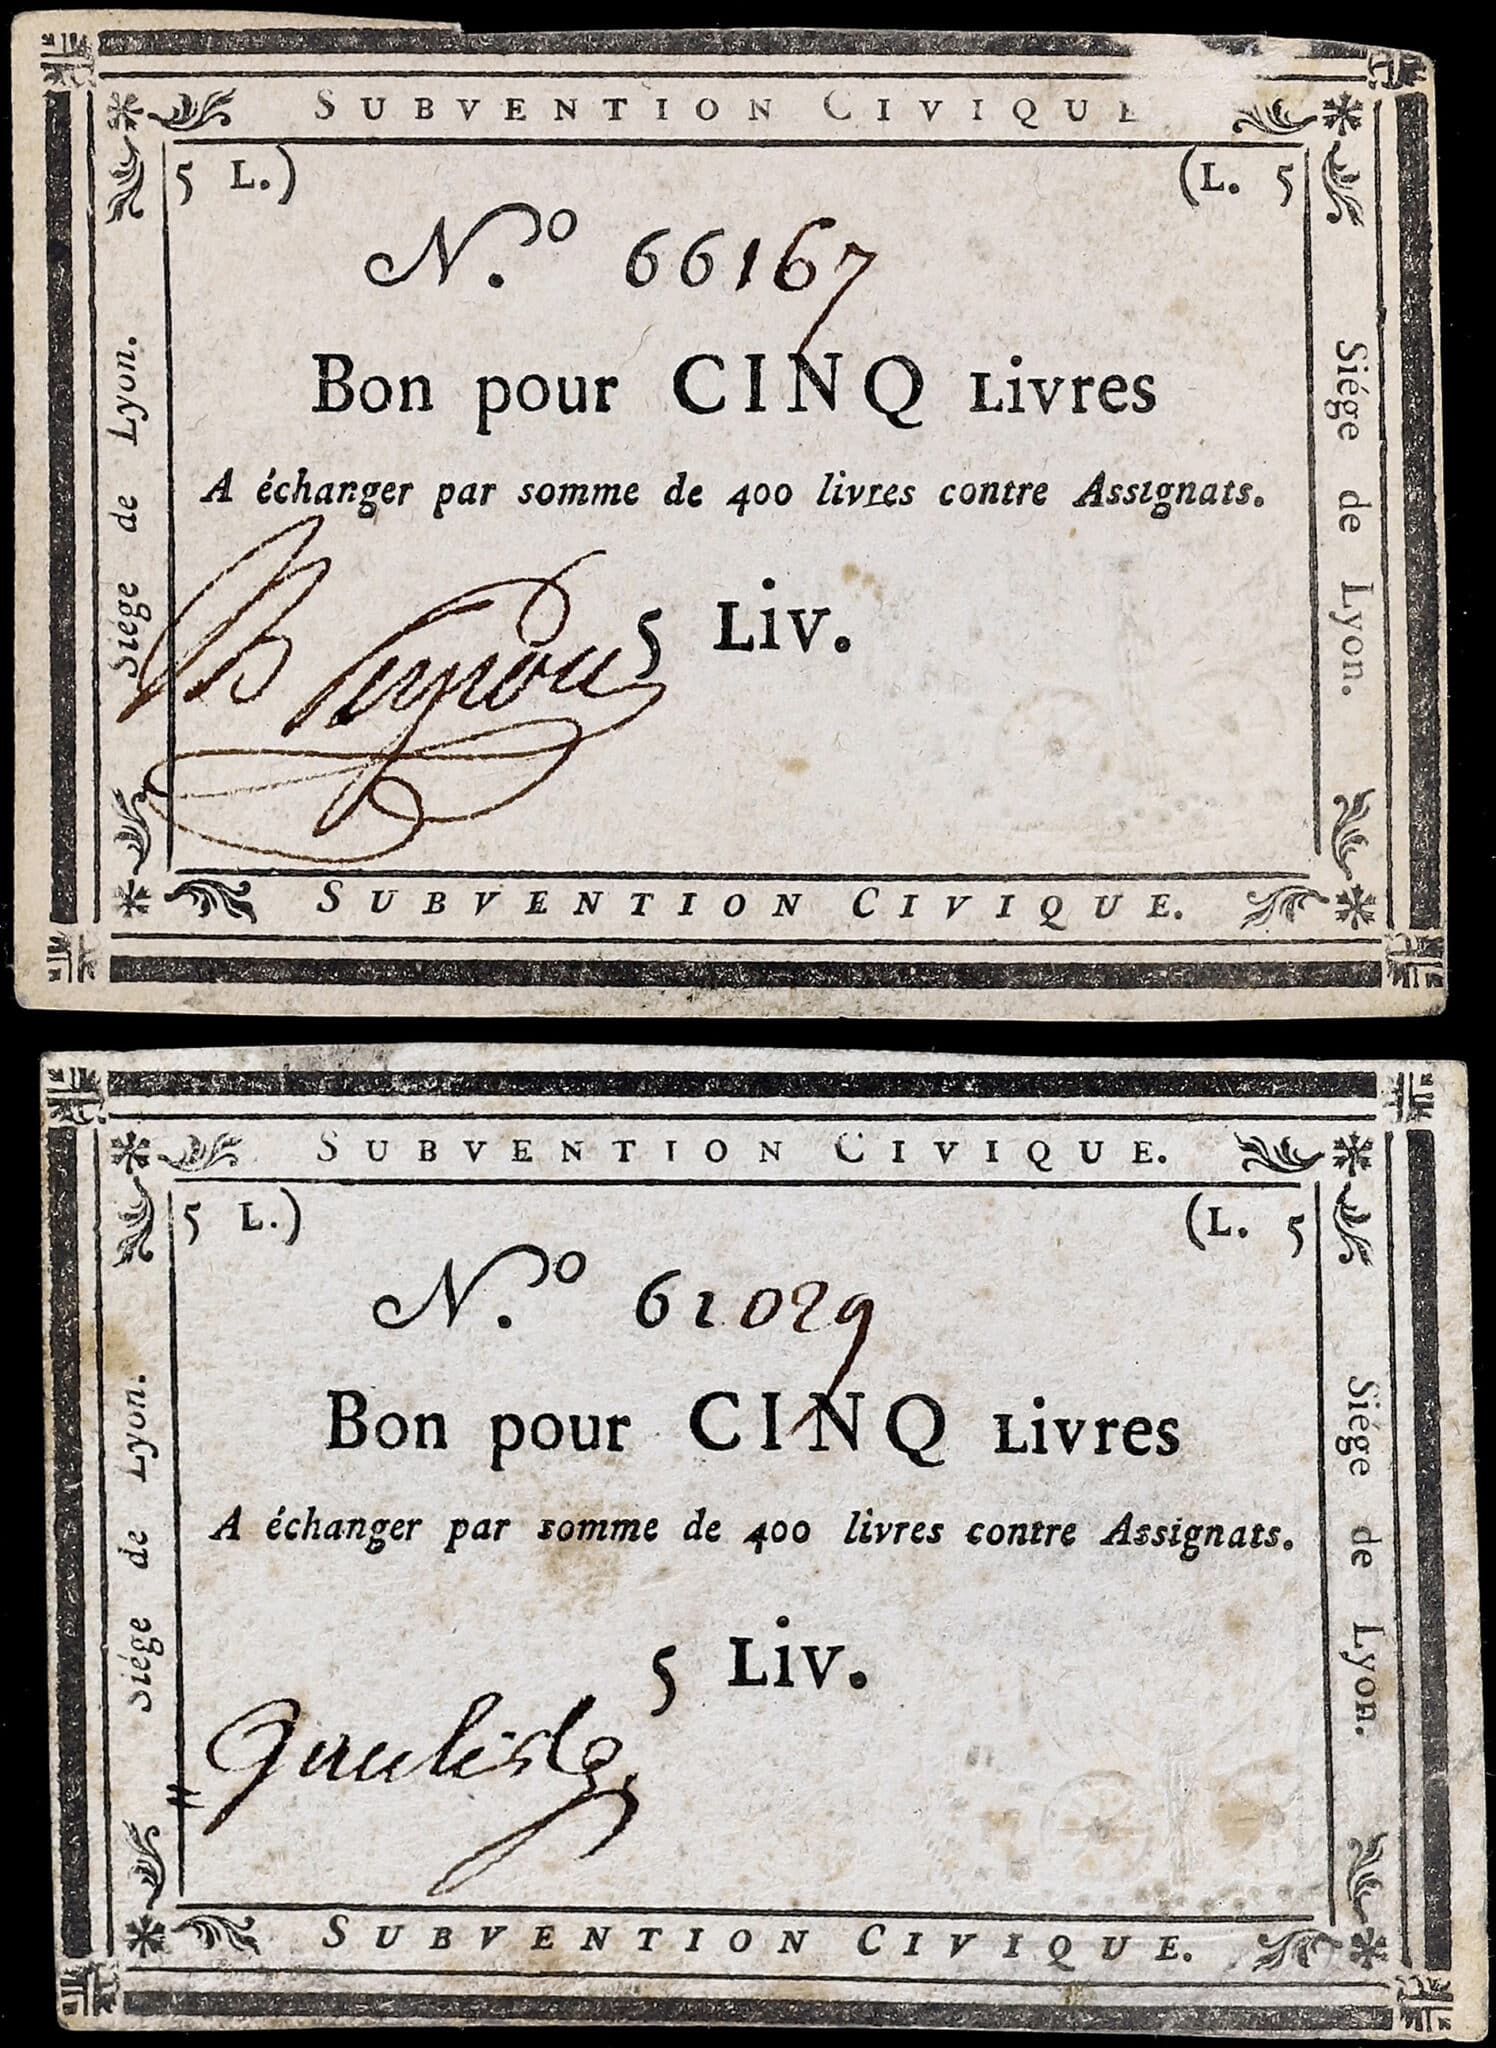 SUBVENTION CIVIQUE
5 L.) (L. 5
N.º 66167
Bon pour CINQ Livres
A échanger par somme de 400 livres contre Assignats.
5 Liv.
Siége de Lyon.
Siége de Lyon.
SUBVENTION CIVIQUE.
SUBVENTION CIVIQUE.
5 L.) (L. 5
N.º 61029
Bon pour CINQ Livres
A échanger par somme de 400 livres contre Assignats.
5 Liv.
Siége de Lyon.
Siége de Lyon.
SUBVENTION CIVIQUE.